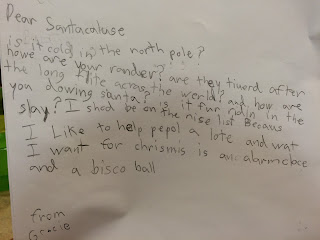 Dear Santacaluse
is it cold in the north pole?
howe are your rander? are they tiuerd after
the long flite across the world? and, how are
you dowing santa? is it fun goin in the
slay? I shod be on the nise list Becaus
I Like to help pepol a lote and wat
I want for chrismis is an alarmcloce
and a bisco ball
from
Gracie